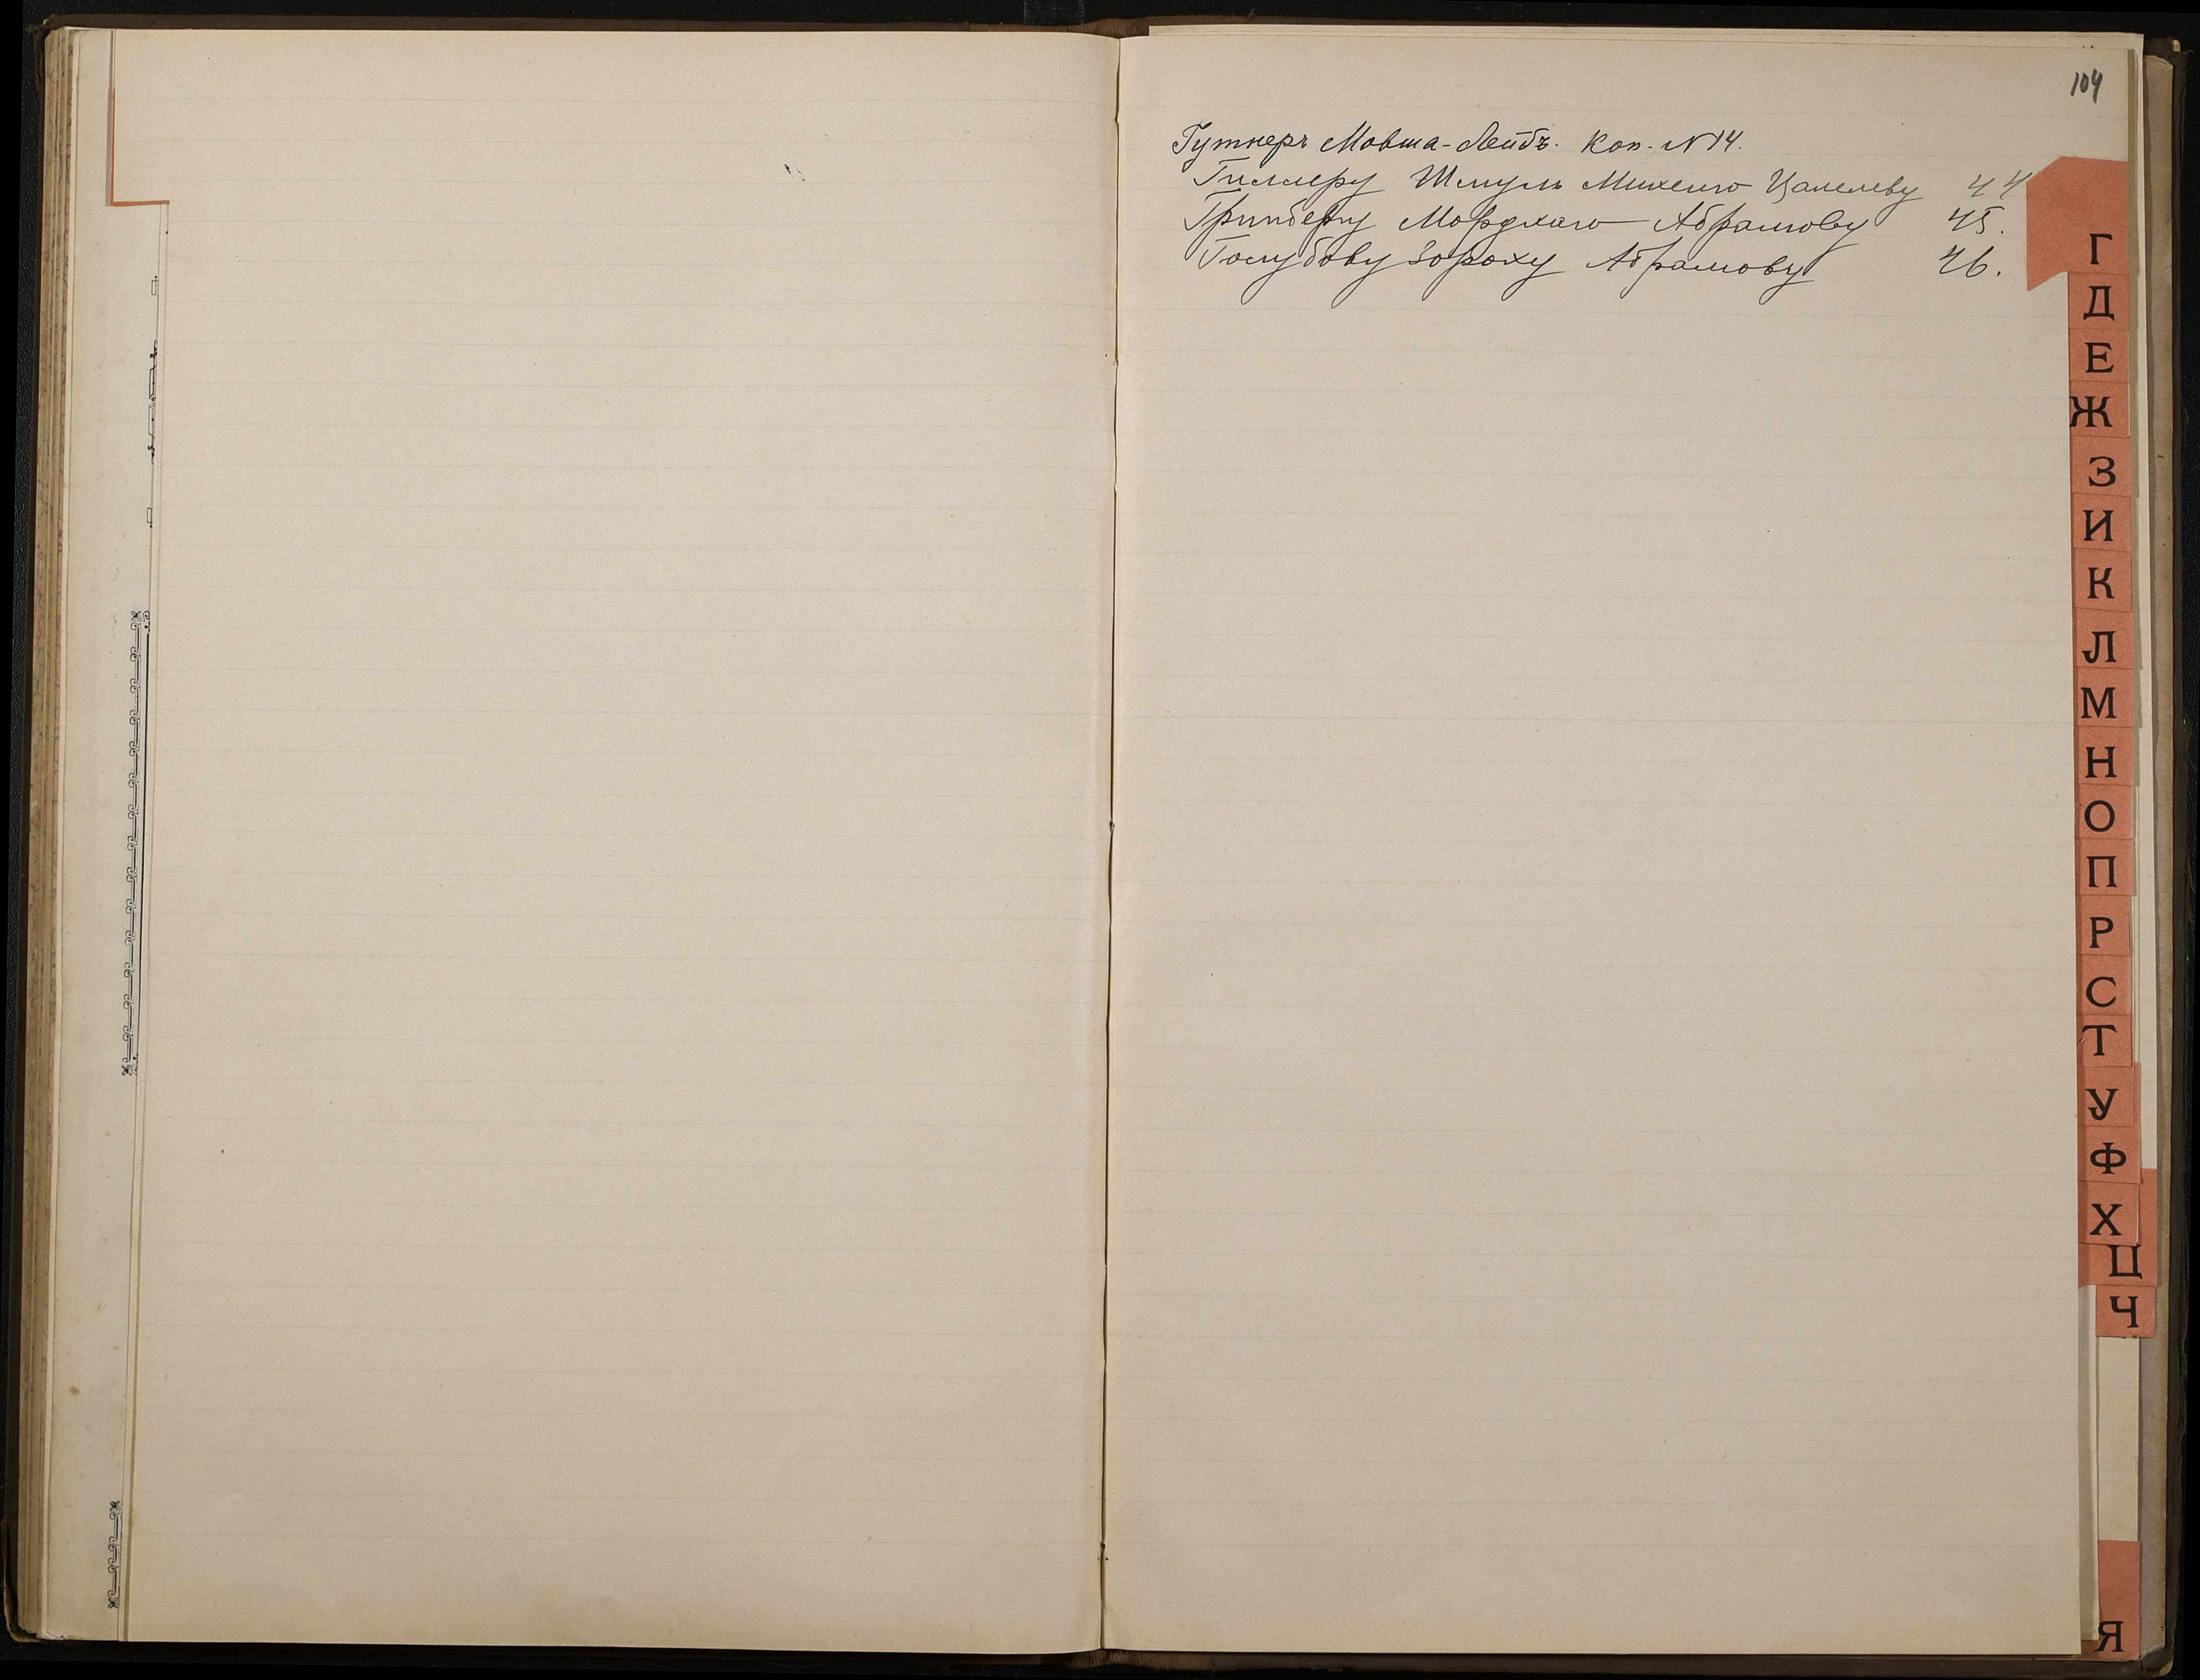 104
Гутнеръ Мовша-Лейбъ. Коп. № 14.
Гиллеру Шмуль Михелю 44
Гринбергу Мордхаю Абрамову 45.
Голубову Зороху Абрамову 46.
Г
Д
Е
Ж
З
И
К
Л
М
Н
О
П
Р
С
Т
У
Ф
Х
Ц
Ч
Я